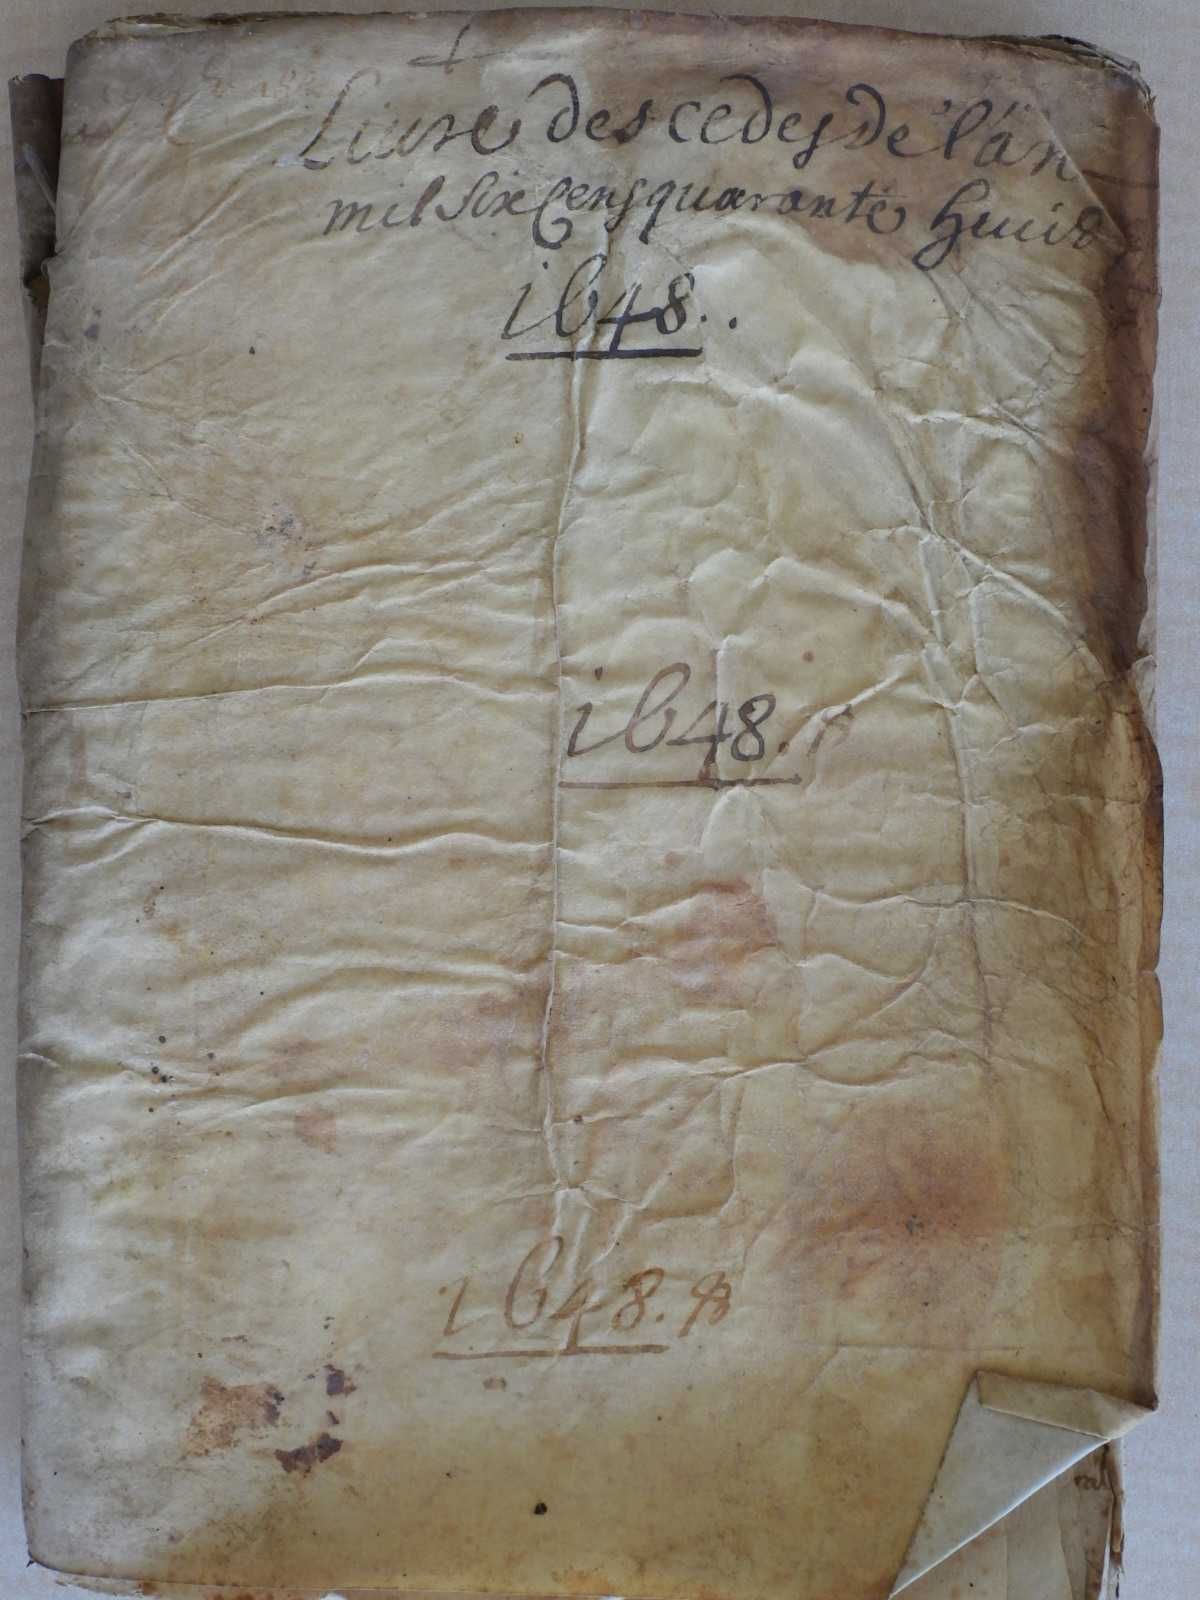 Liure des cedes de l'an
mil six Cens quarante huict
1648..
1648.
1648.